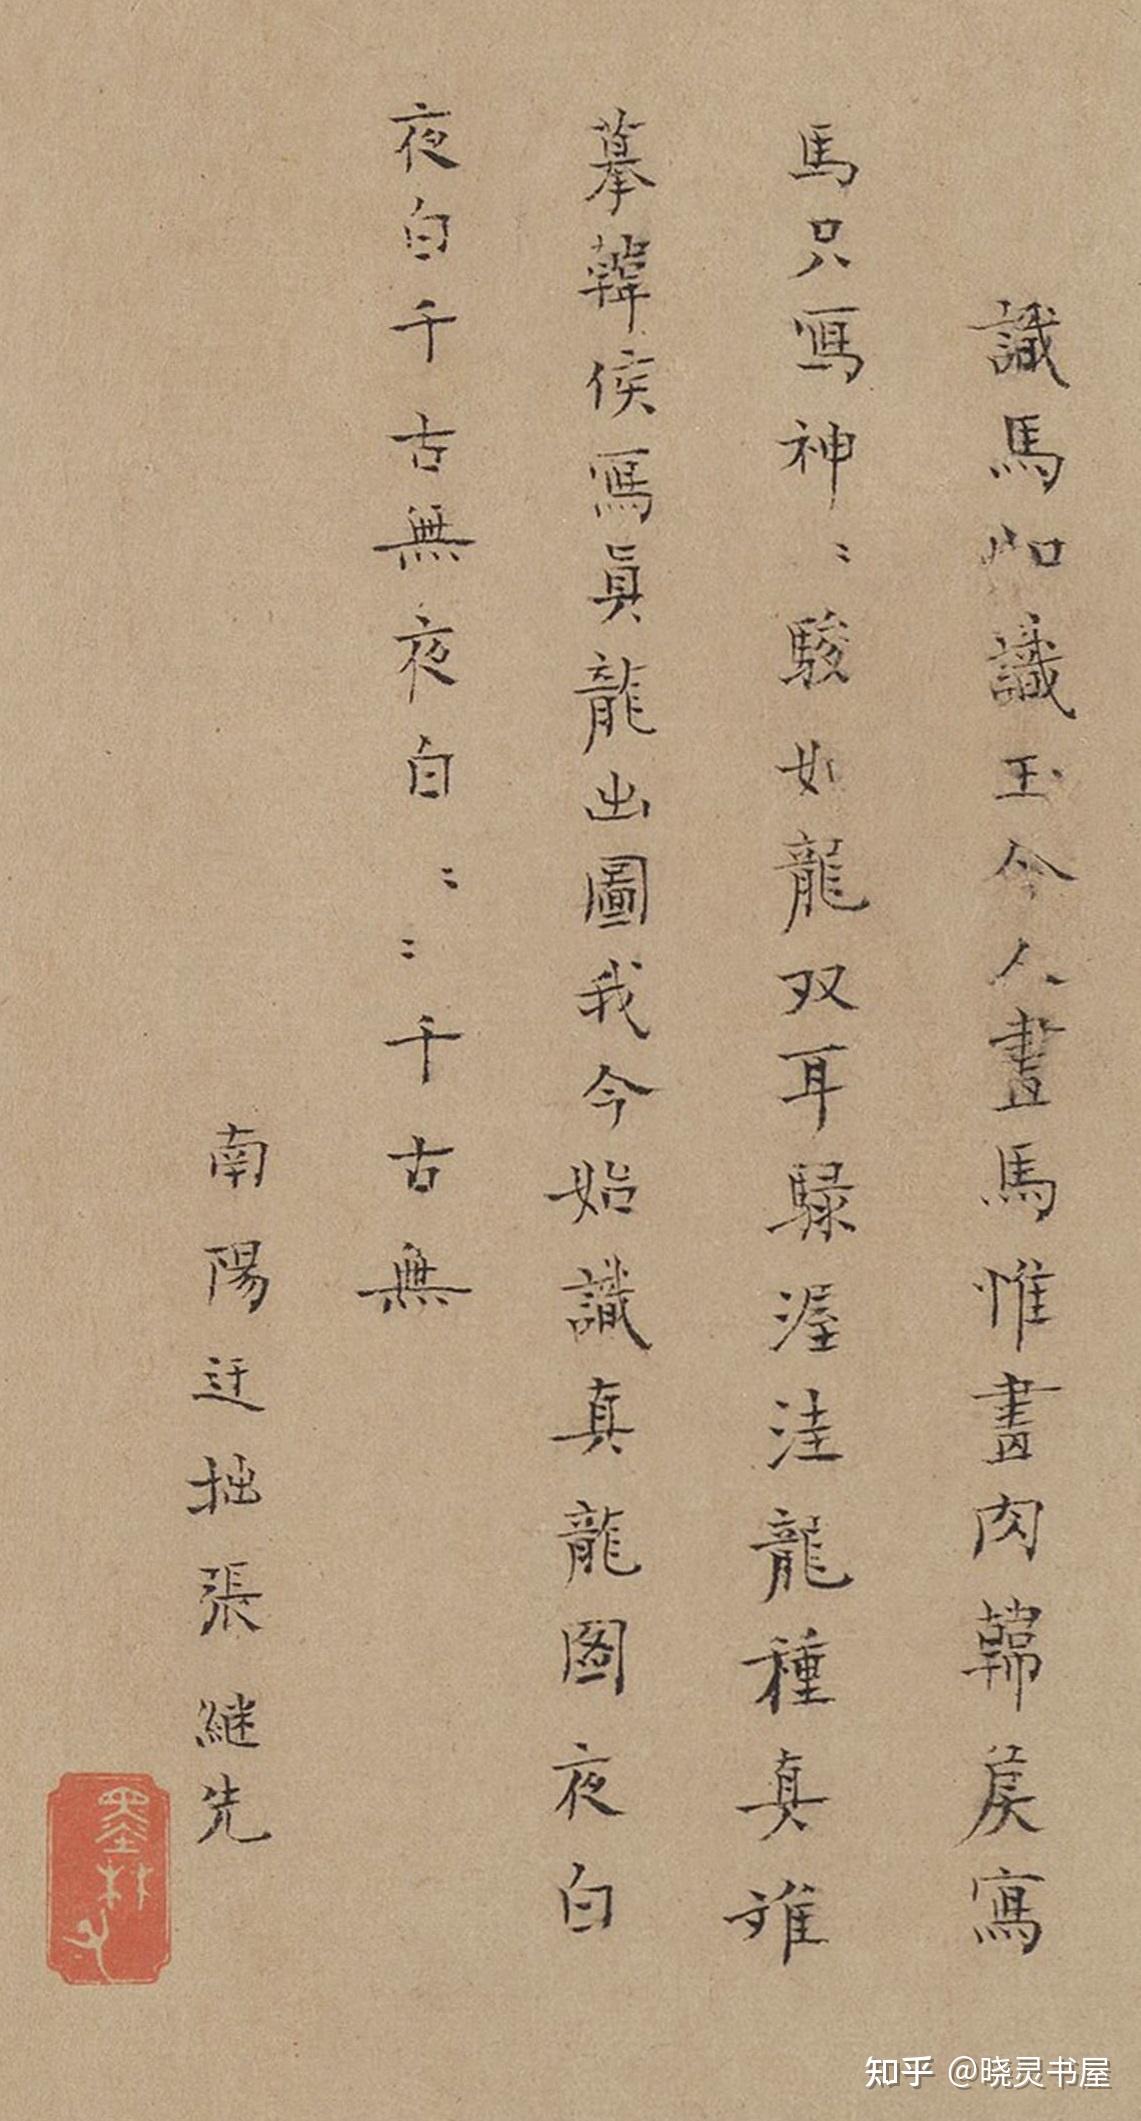 識馬如識玉今人畫馬惟畫肉韓矦寫
馬只寫神〻駿如龍双耳騄渥洼龍種真难
摹韓侯寫眞龍出圖我今始識真龍图夜白
夜白千古無夜白〻〻千古無
南陽迂拙張繼先
知乎 @晓灵书屋